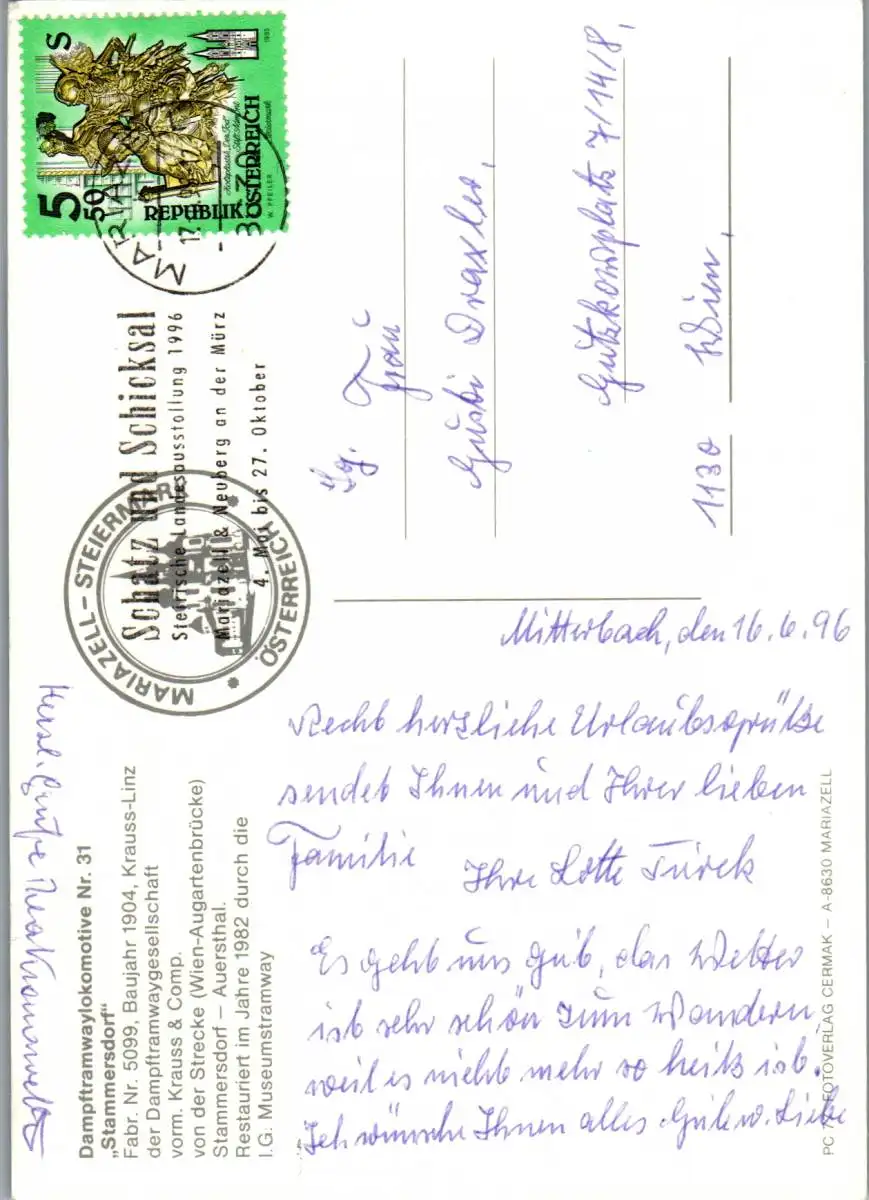 Dampftramwaylokomotive Nr. 31
„Stammersdorf“
Fabr. Nr. 5099, Baujahr 1904, Krauss-Linz
der Dampftramwaygesellschaft
vorm. Krauss & Comp.
von der Strecke (Wien-Augartenbrücke)
Stammersdorf – Auersthal.
Restauriert im Jahre 1982 durch die
I.G: Museumstramway
MARIAZELL – STEIERMARK
ÖSTERREICH
Schatz und Schicksal
Steirische Landesausstellung 1996
Mariazell & Neuberg an der Mürz
4. Mai bis 27. Oktober
5 50 S
REPUBLIK ÖSTERREICH
W. PFEILER
1993
MARIAZ
17.
Frau
Gusti Draxler,
Gutzkowplatz 7/14/8,
1130 Wien,
Mitterbach, den 16.6.96
Recht herzliche Urlaubsgrüße
sendet Ihnen und Ihrer lieben
Familie
Ihre Lotte Türck
Es geht uns gut, das Wetter
ist sehr schön zum Wandern,
weil es nicht mehr so heiß ist.
Ich wünsche Ihnen alles Gute u. Liebe
Herzl. Grüße
PC FOTOVERLAG CERMAK – A-8630 MARIAZELL